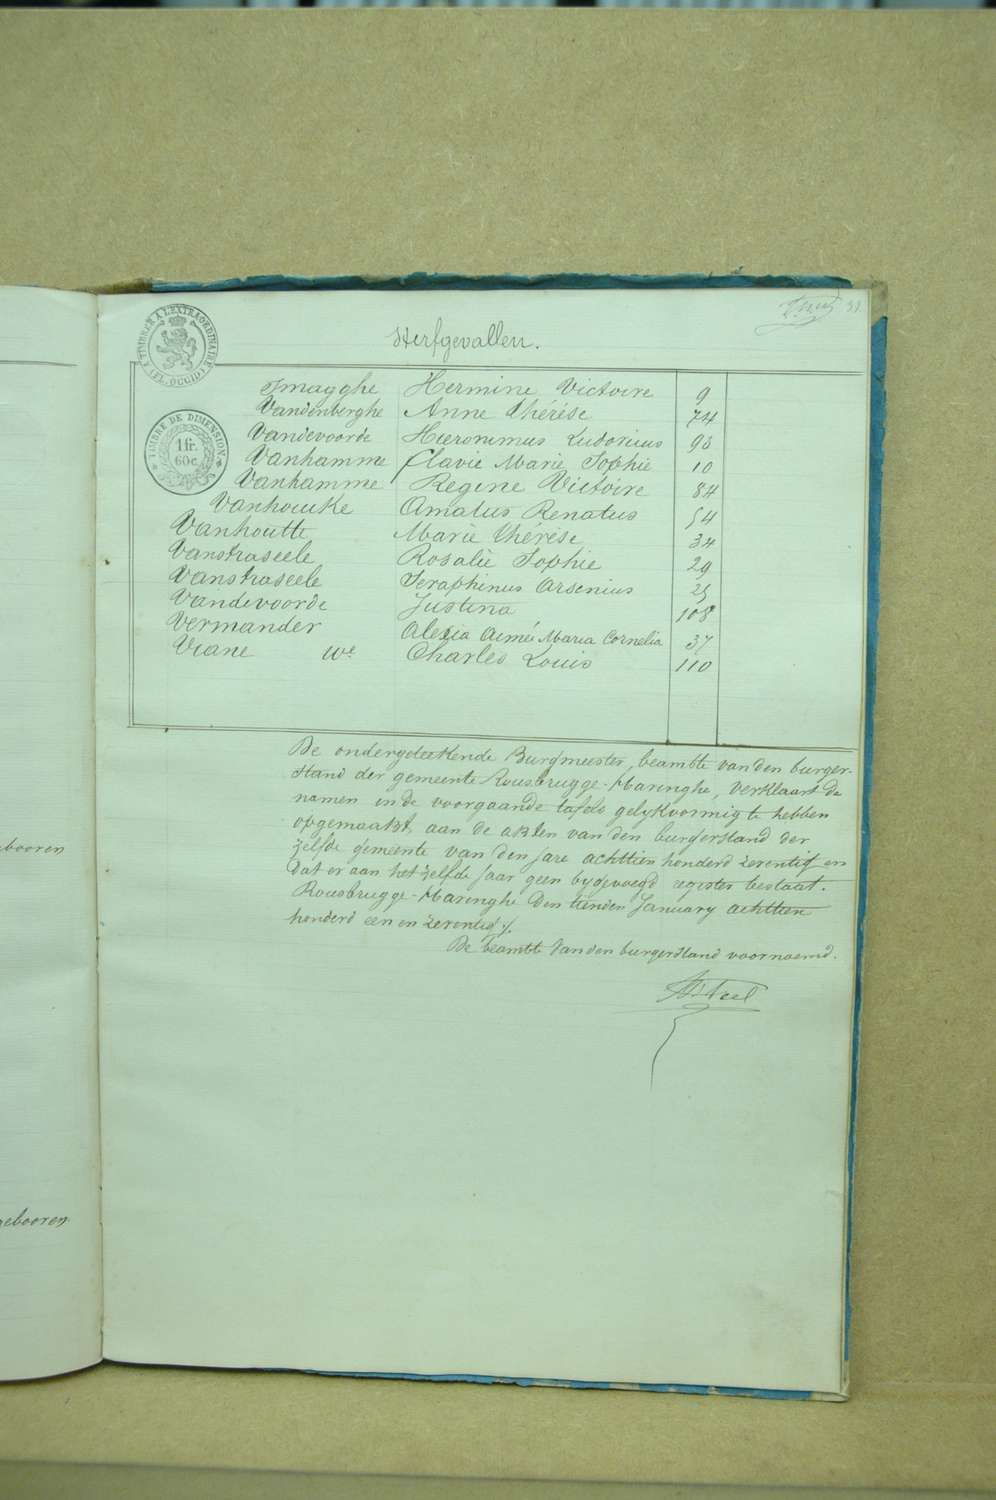 31
Sterfgevallen.
TIMBRE A L'EXTRAORDINAIRE
(FL. OCCID)
TIMBRE DE DIMENSION
1 fr.
60 c.
Smagghe Hermine Victoire 9
Vandenberghe Anne Thérèse 74
Vandevoorde Hieronimus Ludovicus 93
Vanhamme Flavie Marie Sophie 10
Vanhamme Regine Victoire 84
Vanhoucke Amatus Renatus 54
Vanhoutte Marie Thérèse 34
Vanstraseele Rosalie Sophie 29
Vanstraseele Seraphinus Arsenius 25
Vandevoorde Justina 108
Vermander Alexia Aimée Maria Cornelia 37
Viane We Charles Louis 110
De ondergeteekende Burgmeester, beambte van den burger-
stand der gemeente Rousbrugge-Haringhe, verklaart de
namen in de voorgaande tafels gelykvormig te hebben
opgemaakt, aan de akten van den burgerstand der
zelfde gemeente van den jare achttien honderd zeventig en
dat er aan het zelfde jaar geen bygevoegd register bestaat.
Rousbrugge-Haringhe den tienden January achttien
honderd een en zeventig.
De beambte van den burgerstand voornoemd.
ebooren
gebooren